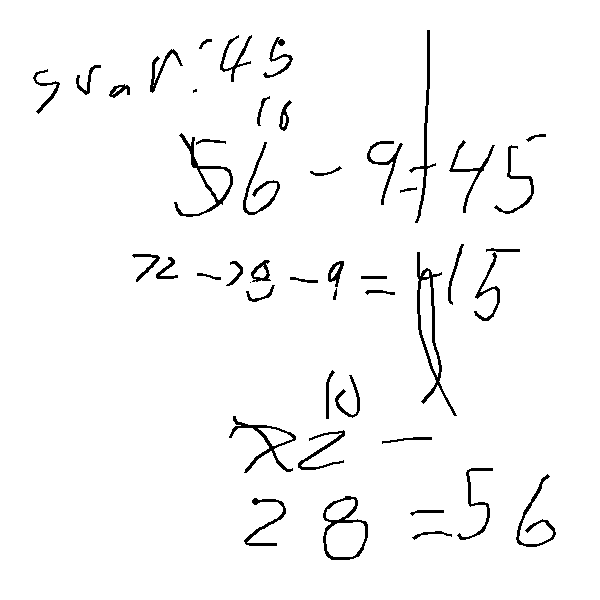 svar: 45
10
56 - 9 = 45
72 - 28 - 9 = 45
10
72 -
28 = 56